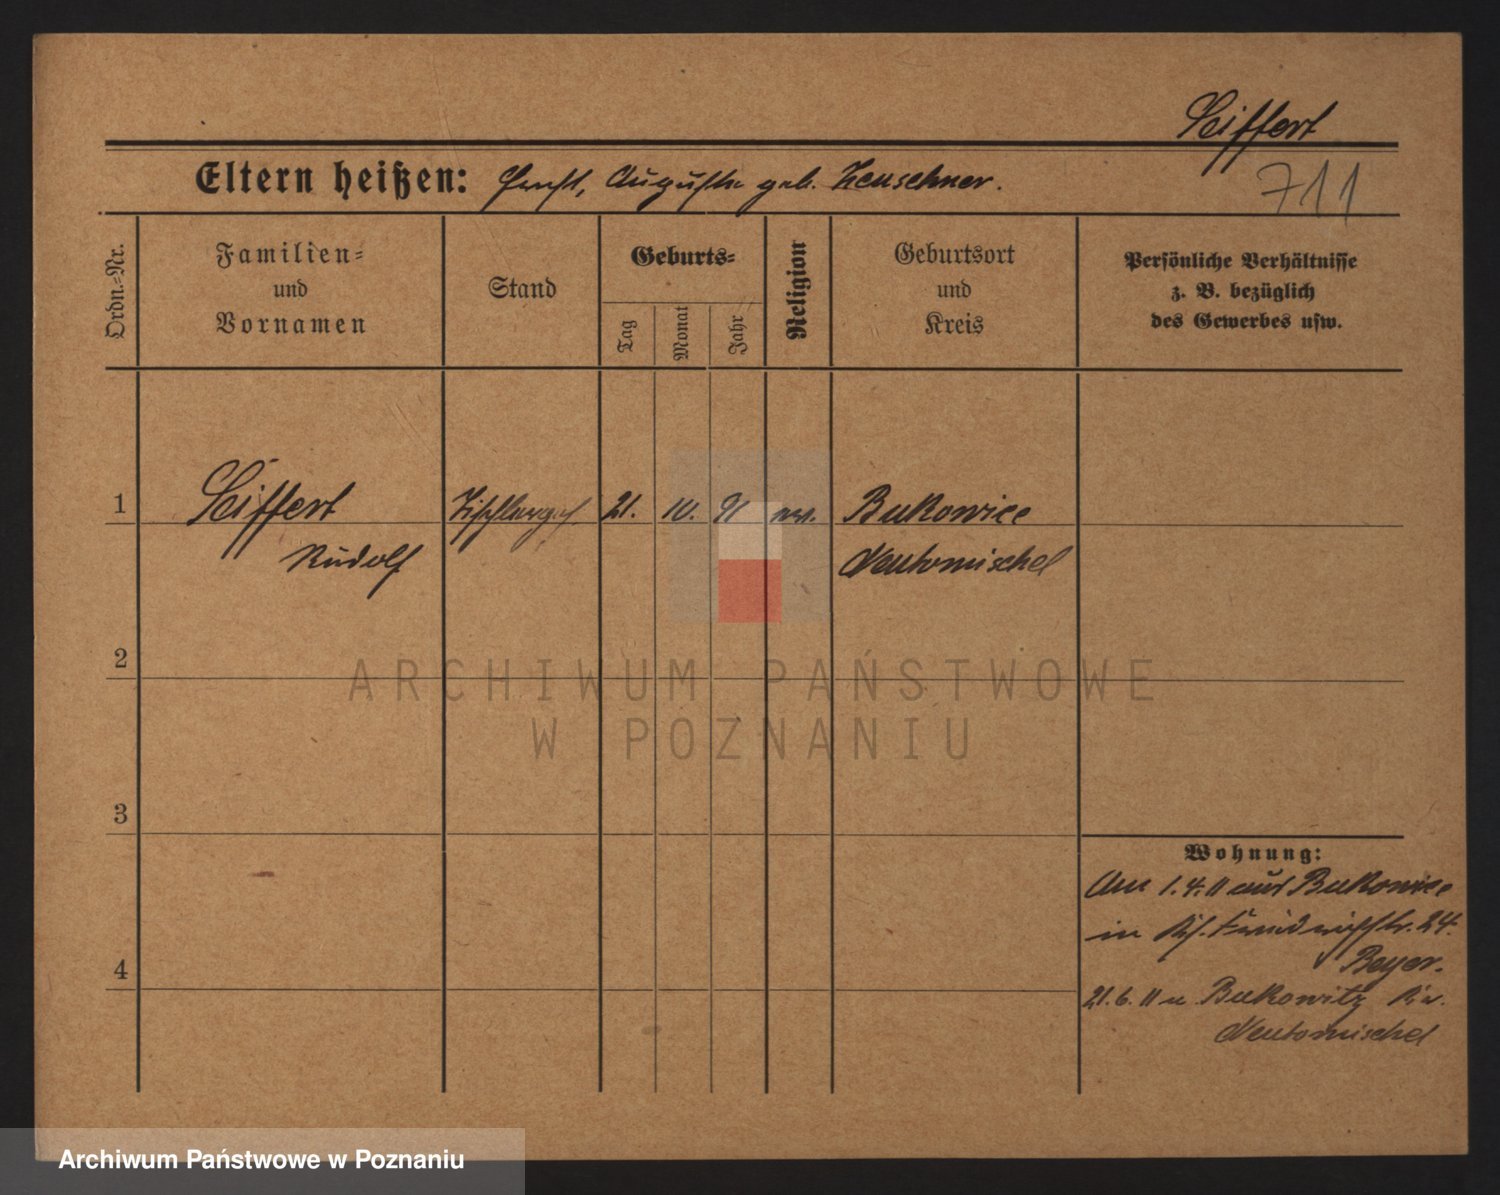 Seiffert
711
Eltern heißen: Ernst, Auguste geb. Zeuschner.
Ordn.=Nr.
Familien=
und
Vornamen
Stand
Geburts=
Tag
Monat
Jahr
Religion
Geburtsort
und
Kreis
Persönliche Verhältnisse
z. B. bezüglich
des Gewerbes usw.
1
Seiffert
Rudolf
Tischlerges.
21.
10.
91
ev.
Bukowiec
Neutomischel
2
3
4
ARCHIWUM PAŃSTWOWE
W POZNANIU
Wohnung:
Am 1.4.11 aus Bukowiec
in 24.
Beyer.
21.6.11 n. Bukowitz Kr.
Neutomischel
Archiwum Państwowe w Poznaniu